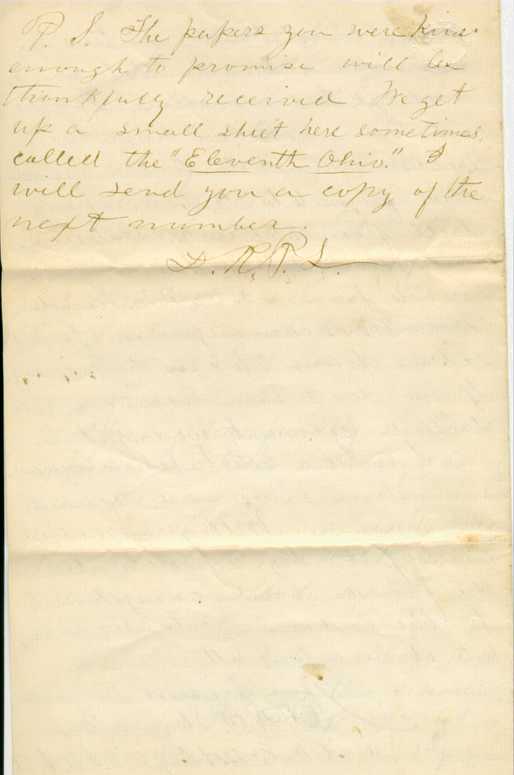 P. S. The papers you were kind
enough to promise will be
thankfully received We get
up a small sheet here sometimes
called the "Eleventh Ohio." I
will send you a copy of the
next number.
D. R. P. L.